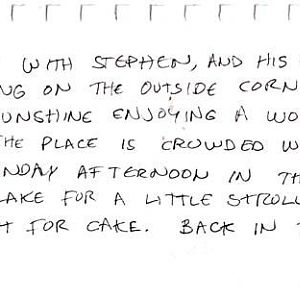 WITH STEPHEN, AND HIS
NG ON THE OUTSIDE CORN
UNSHINE ENJOYING A WO
THE PLACE IS CROWDED W
NDAY AFTERNOON IN TH
LAKE FOR A LITTLE STROLL
T FOR CAKE. BACK IN T